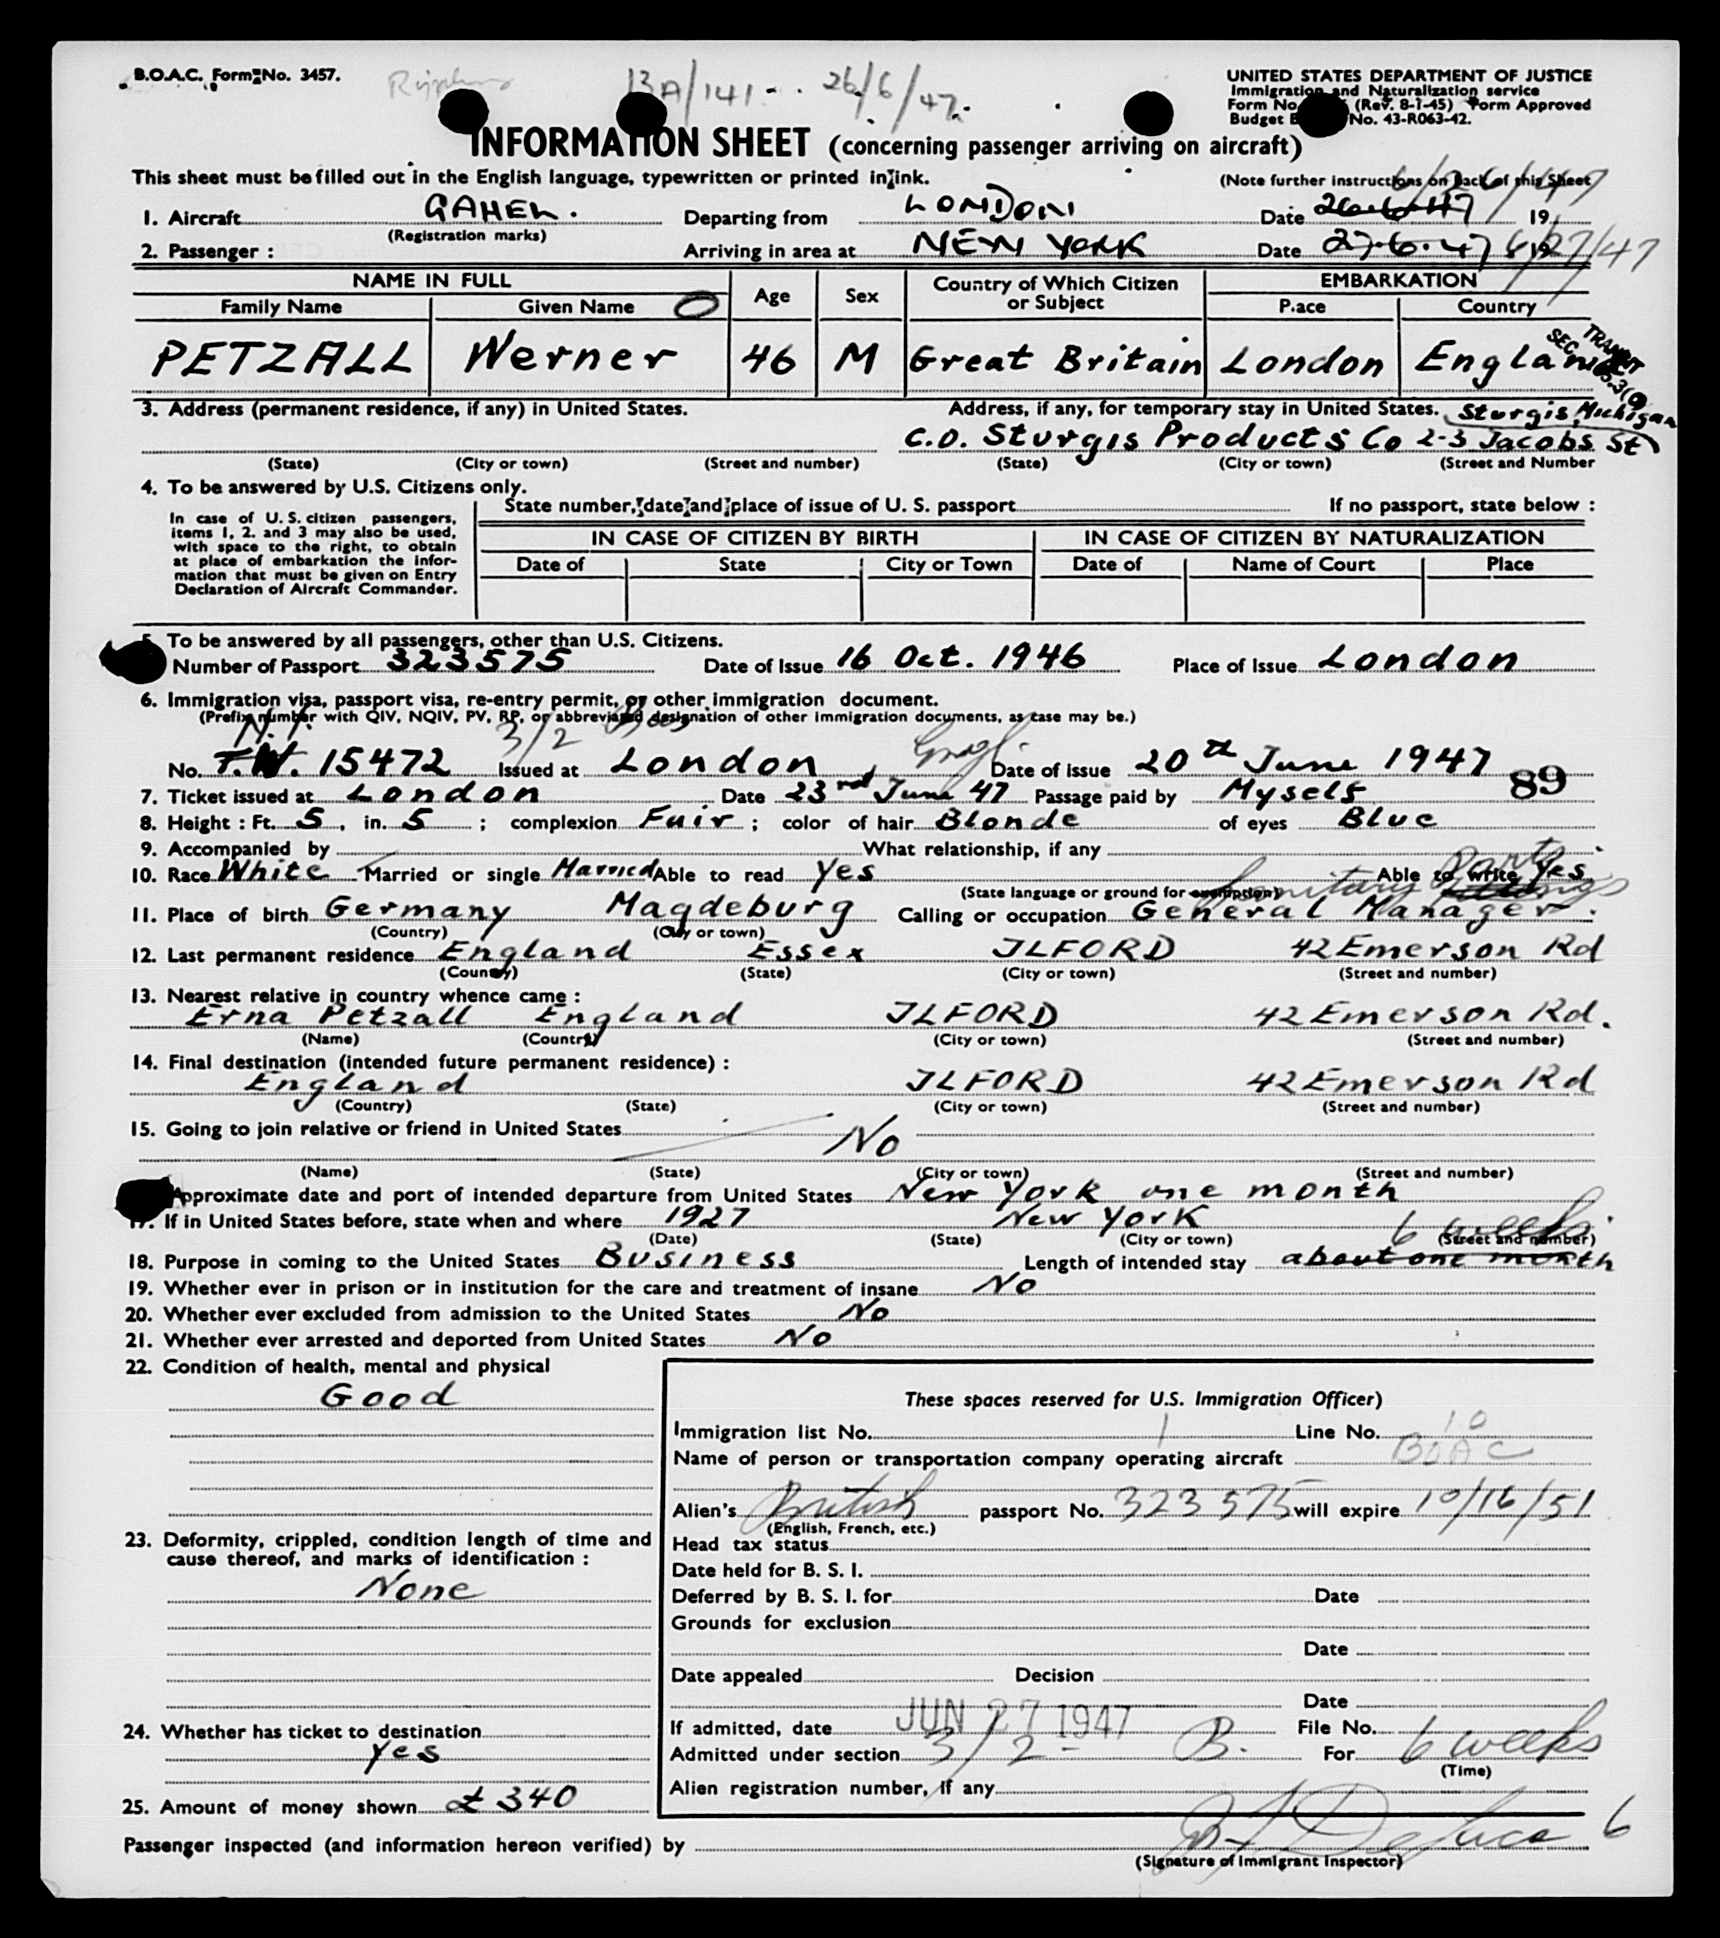 B.O.A.C. Form No. 3457.
BA/141 26/6/47
UNITED STATES DEPARTMENT OF JUSTICE
Immigration and Naturalization service
Form No. (Rev. 8-1-45) Form Approved
Budget No. 43-R063-42.
INFORMATION SHEET (concerning passenger arriving on aircraft)
This sheet must be filled out in the English language, typewritten or printed in ink.
(Note further instructions on back of this Sheet
6/26/47
1. Aircraft GAHEL. Departing from LONDON Date 26.6.47 19
(Registration marks)
2. Passenger : Arriving in area at NEW YORK Date 27.6.47 19 6/27/47
NAME IN FULL Age Sex Country of Which Citizen or Subject EMBARKATION
Family Name Given Name Place Country
PETZALL Werner 46 M Great Britain London England
TRANSIT
SEC.
3. Address (permanent residence, if any) in United States. Address, if any, for temporary stay in United States. Sturgis, Michigan
C.O. Sturgis Products Co 2-3 Jacobs St
(State) (City or town) (Street and number) (State) (City or town) (Street and Number
4. To be answered by U.S. Citizens only.
State number, date and place of issue of U. S. passport If no passport, state below :
In case of U. S. citizen passengers,
items 1, 2. and 3 may also be used,
with space to the right, to obtain
at place of embarkation the infor-
mation that must be given on Entry
Declaration of Aircraft Commander.
IN CASE OF CITIZEN BY BIRTH IN CASE OF CITIZEN BY NATURALIZATION
Date of State City or Town Date of Name of Court Place
5. To be answered by all passengers, other than U.S. Citizens.
Number of Passport 323575 Date of Issue 16 Oct. 1946 Place of Issue London
6. Immigration visa, passport visa, re-entry permit, or other immigration document.
(Prefix number with QIV, NQIV, PV, RP, or abbreviated designation of other immigration documents, as case may be.)
3/2
No. T.W. 15472 Issued at London Date of issue 20th June 1947
7. Ticket issued at London Date 23rd June 47 Passage paid by Myself 89
8. Height : Ft. 5, in. 5 ; complexion Fair ; color of hair Blonde of eyes Blue
9. Accompanied by What relationship, if any
10. Race White Married or single Married Able to read Yes Able to write Yes
(State language or ground for exemption)
Sanitary
11. Place of birth Germany Magdeburg Calling or occupation General Manager
(Country) (City or town)
12. Last permanent residence England Essex ILFORD 42 Emerson Rd
(Country) (State) (City or town) (Street and number)
13. Nearest relative in country whence came :
Erna Petzall England ILFORD 42 Emerson Rd.
(Name) (Country) (City or town) (Street and number)
14. Final destination (intended future permanent residence) :
England ILFORD 42 Emerson Rd
(Country) (State) (City or town) (Street and number)
15. Going to join relative or friend in United States No
(Name) (State) (City or town) (Street and number)
Approximate date and port of intended departure from United States New York one month
17. If in United States before, state when and where 1927 New York
(Date) (State) (City or town) (Street and number)
6 weeks
18. Purpose in coming to the United States Business Length of intended stay about one month
19. Whether ever in prison or in institution for the care and treatment of insane No
20. Whether ever excluded from admission to the United States No
21. Whether ever arrested and deported from United States No
22. Condition of health, mental and physical
Good
23. Deformity, crippled, condition length of time and
cause thereof, and marks of identification :
None
24. Whether has ticket to destination
Yes
25. Amount of money shown £340
These spaces reserved for U.S. Immigration Officer)
Immigration list No. 1 Line No. 10
Name of person or transportation company operating aircraft BOAC
Alien's British passport No. 323575 will expire 10/16/51
(English, French, etc.)
Head tax status
Date held for B. S. I.
Deferred by B. S. I. for Date
Grounds for exclusion
Date
Date appealed Decision
Date
If admitted, date JUN 27 1947 File No.
Admitted under section 3/2 - B. For 6 weeks
(Time)
Alien registration number, if any
Passenger inspected (and information hereon verified) by 6
(Signature of Immigrant Inspector)